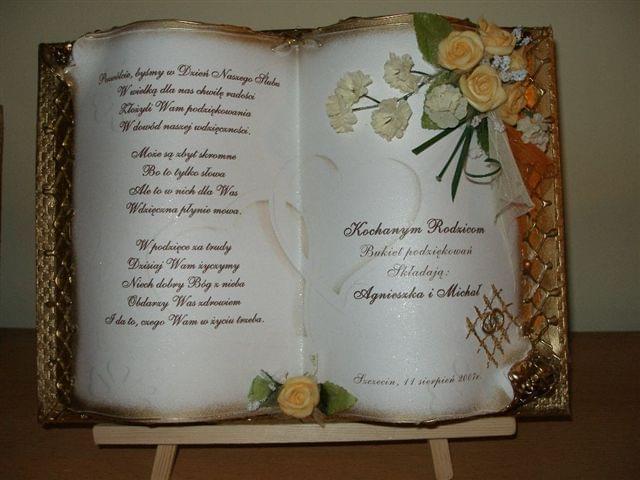 Pozwólcie, byśmy w Dzień Naszego Ślubu
W wielką dla nas chwilę radości
Złożyli Wam podziękowania
W dowód naszej wdzięczności.
Może są zbyt skromne
Bo to tylko słowa
Ale to w nich dla Was
Wdzięczna płynie mowa.
W podzięce za trudy
Dzisiaj Wam życzymy
Niech dobry Bóg z nieba
Obdarzy Was zdrowiem
I da to, czego Wam w życiu trzeba.
Kochanym Rodzicom
Bukiet podziękowań
Składają:
Agnieszka i Michał
Szczecin, 11 sierpień 2007r.